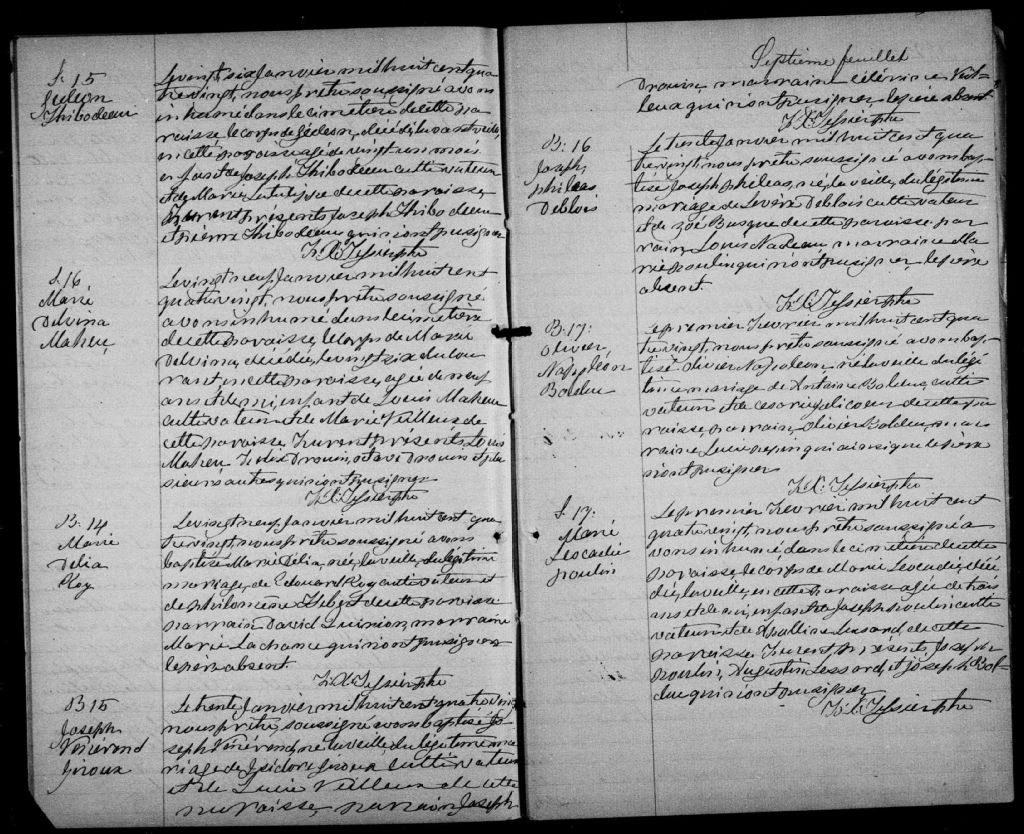 S. 15
Gédéon
Thibodeau
Le vingt six Janvier mil huit cent qua
trevingt, nous prêtre soussigné avons
inhumé dans le cimetière de cette pa
roisse, le corps de Gédéon, décédé
en cette paroisse agé de vingt un mois
enfant de Joseph Thibodeau cultivateur
et de Marie de cette paroisse,
Furent présents Joseph Thibodeau
et Pierre Thibodeau qui n'ont pu signer
Tessier ptre
S. 16
Marie
Delvina
Maheu
Le vingt neuf Janvier mil huit cent
quatrevingt, nous prêtre soussigné
avons inhumé dans le cimetière
de cette paroisse, le corps de Marie
Delvina, décédée, le vingt six du cou
rant, en cette paroisse, agée de neuf
ans et demi, enfant de Louis Maheu
cultivateur et de Marie Veilleux de
cette paroisse, Furent présents, Louis
Maheu, Drouin, Octave Drouin et plu
sieurs autres qui n'ont pu signer
Tessier ptre
B. 14
Marie
Délia
Roy
Le vingt neuf Janvier mil huit cent qua
trevingt, nous prêtre soussigné avons
baptisé Marie Délia, née, la veille, du légitime
mariage, de Edouard Roy cultivateur et
de Philomène de cette paroisse
parrain David marraine
Marie Lachance qui n'ont pu signer
le père absent.
Tessier ptre
B 15
Joseph
Vénérend
Giroux
Le trente Janvier mil huit cent quatrevingt
nous prêtre, soussigné avons baptisé Jo
seph Vénérend, né la veille du légitime ma
riage de Isidore Giroux cultivateur
et de Lucie Veilleux de cette
paroisse, parrain Joseph
Septième feuillet
Drouin, marraine Célérine Veil-
leux qui n'ont pu signer, le père absent
Tessier ptre
B. 16
Joseph
Philéas
Deblois
Le Janvier mil huit cent qua
trevingt, nous prêtre soussigné avons bap-
tisé Joseph Philéas, né, la veille, du légitime
mariage de Deblois cultivateur
et de Zoé Busque de cette paroisse, par
rain, Louis Nadeau, marraine Ma
rie Poulin qui n'ont pu signer, le père
absent.
Tessier ptre
B. 17.
Olivier
Napoléon
Bolduc
Le premier Fevrier mil huit cent qua
trevingt, nous prêtre soussigné avons bap-
tisé Olivier Napoléon, né la veille du légi
time mariage de Antoine Bolduc, culti
vateur et de de cette pa
roisse, parrain, Olivier Bolduc, mar
raine qui ainsi que le père
n'ont pu signer
Tessier ptre
S. 17.
Marie
Leocadie
Poulin
Le premier Fevrier mil huit cent
quatrevingt, nous prêtre soussigné a
vons inhumé dans le cimetière de cette
paroisse, le corps de Marie Leocadie, décé
dée, la veille, en cette paroisse agée de trois
ans et demi, enfant de Joseph Poulin culti
vateur et de Apolline Lessard, de cette
paroisse, Furent présents, Joseph
Poulin, Augustin Lessard, et Joseph Bol-
duc qui n'ont pu signer
Tessier ptre